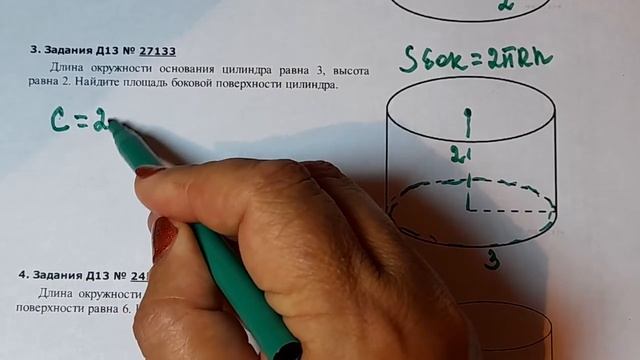 2
3. Задания Д13 № 27133
Длина окружности основания цилиндра равна 3, высота
равна 2. Найдите площадь боковой поверхности цилиндра.
Sбок=2πRh
C=2
2
3
4. Задания Д13 № 24
Длина окружности
поверхности равна 6.